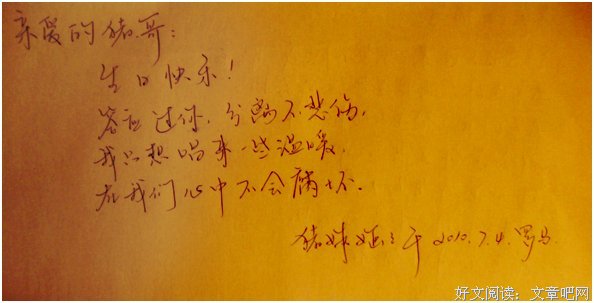 亲爱的猪哥：
生日快乐！
答应过你，分离不悲伤，
我只想唱来一些温暖，
在我们心中不会腐坏。
猪妹 于2010.7.4.罗马
好文阅读：文章吧网